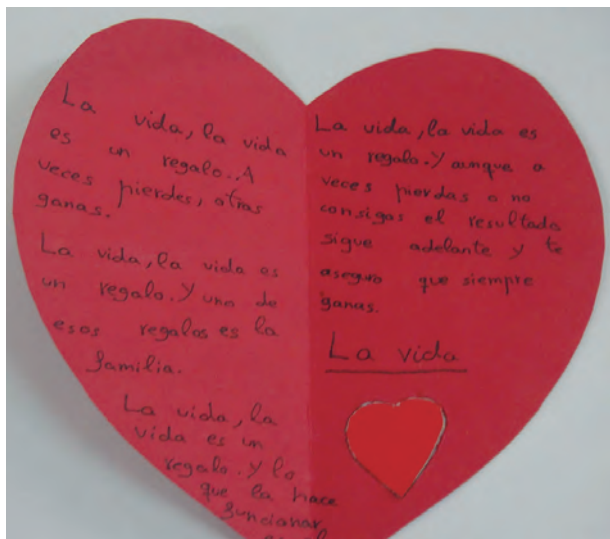 La vida, la vida
es un regalo. A
veces pierdes, otras
ganas.
La vida, la vida es
un regalo. Y uno de
esos regalos es la
familia.
La vida, la
vida es un
regalo. Y lo
que la hace
funcionar
La vida, la vida es
un regalo. Y aunque a
veces pierdas o no
consigas el resultado
sigue adelante y te
aseguro que siempre
ganas.
La vida